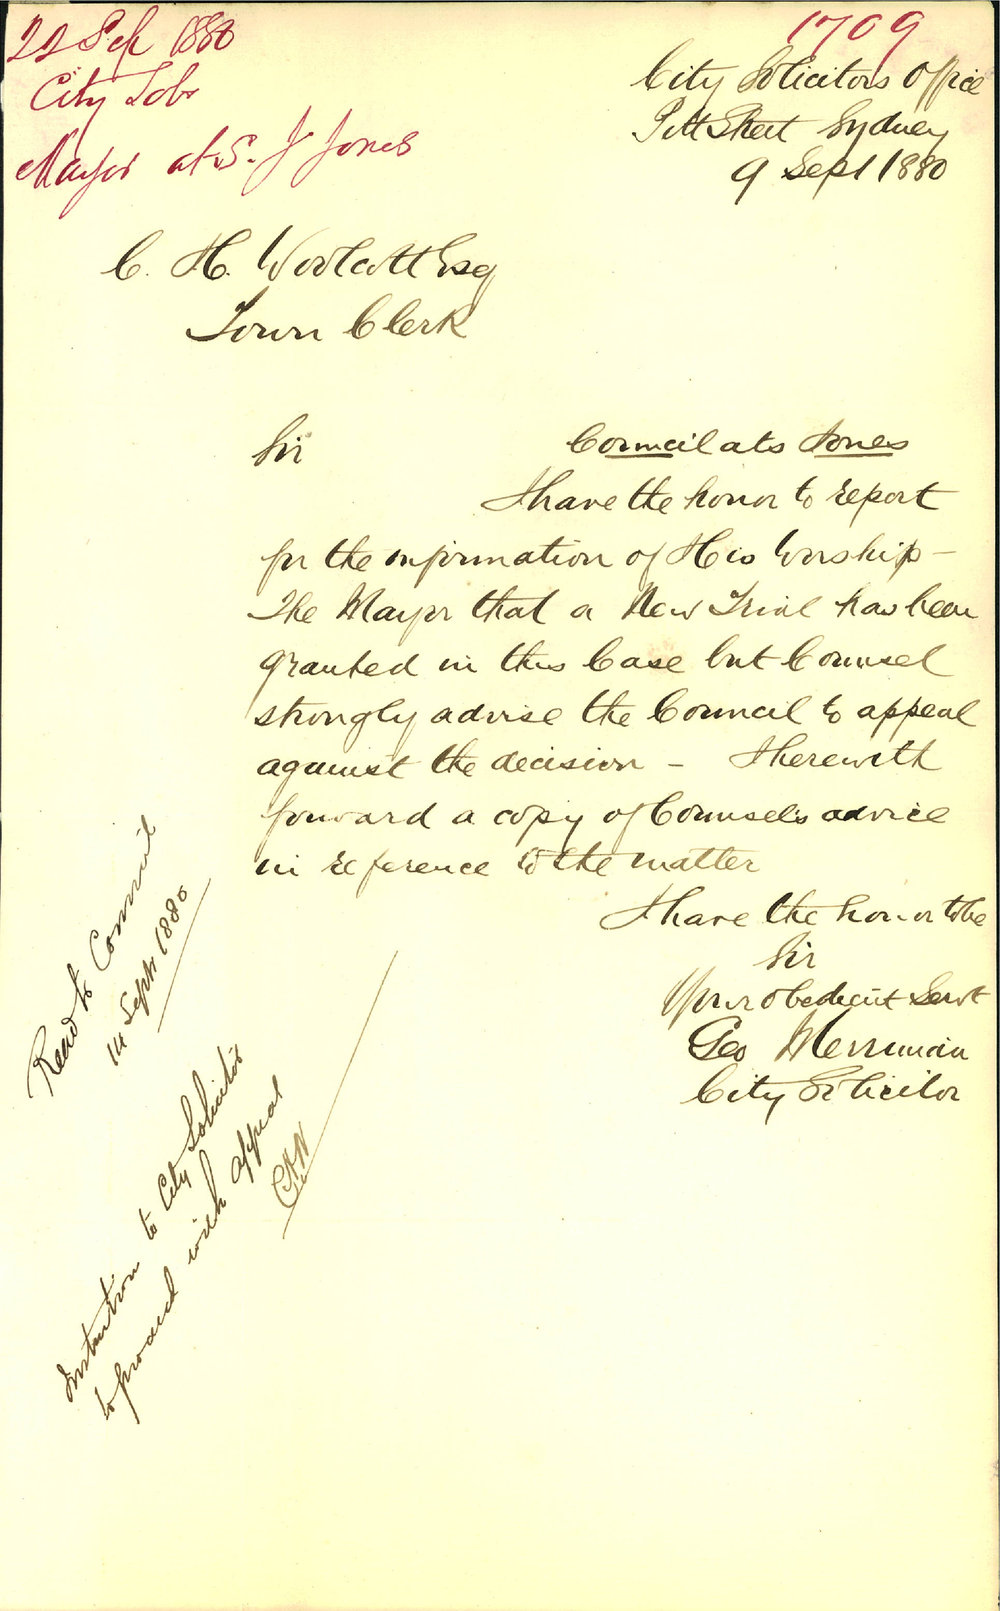 1709
22 Sep 1880
City Solr
Mayor ats. J Jones
City Solicitors Office
Pitt Street Sydney
9 Sept 1880
C. H. Woolcott Esq
Town Clerk
Sir
Council ats Jones
I have the honor to report
for the information of His Worship –
The Mayor that a New Trial has been
granted in this Case but Counsel
strongly advise the Council to appeal
against the decision – I herewith
forward a copy of Counsel's advice
in reference to the matter
I have the honor to be
Sir
Your obedient Servt
Geo Merriman
City Solicitor
Read to Council
14 Septr 1880
Instruction to City Solicitor
to proceed with appeal